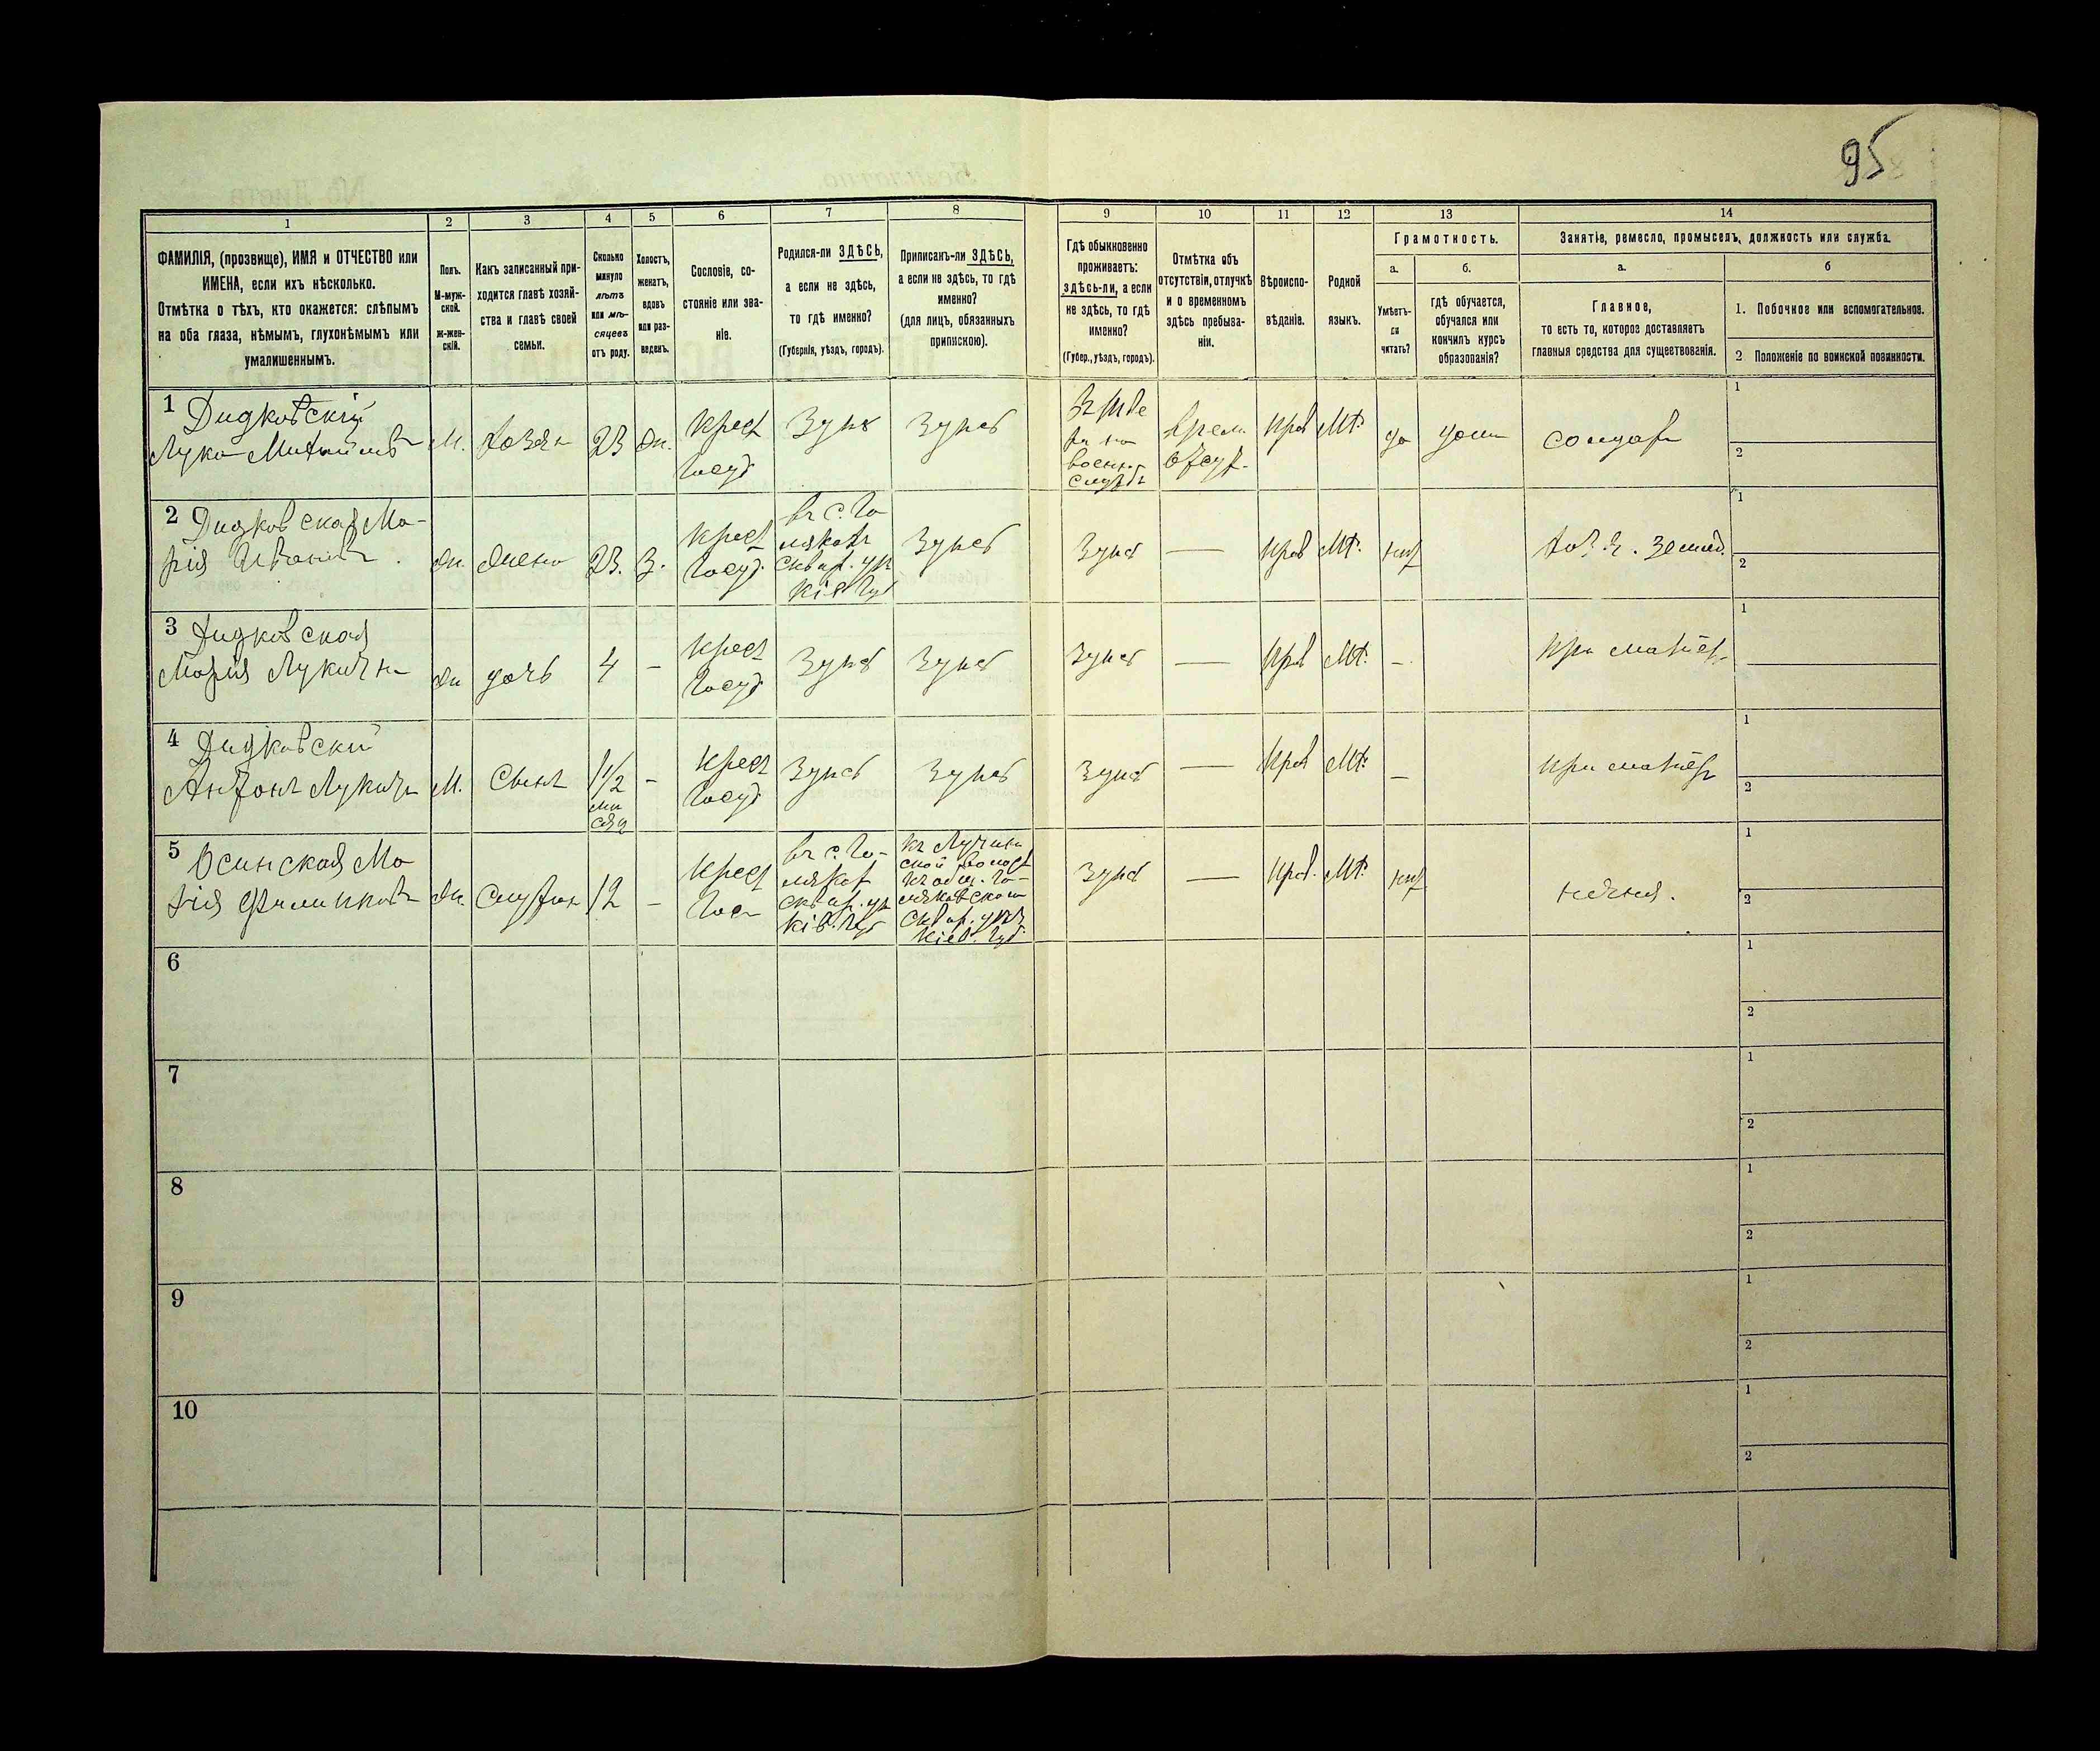 95
1 2 3 4 5 6 7 8 9 10 11 12 13 14
ФАМИЛІЯ, (прозвище), ИМЯ и ОТЧЕСТВО или
ИМЕНА, если ихъ нѣсколько.
Отмѣтка о тѣхъ, кто окажется: слѣпымъ
на оба глаза, нѣмымъ, глухонѣмымъ или
умалишеннымъ.
Полъ.
М-муж-
ской.
ж-жен-
скій.
Какъ записанный при-
ходится главѣ хозяй-
ства и главѣ своей
семьи.
Сколько
минуло
лѣтъ
или мѣ-
сяцевъ
отъ роду.
Холостъ,
женатъ,
вдовъ
или раз-
веденъ.
Сословіе, со-
стояніе или зва-
ніе.
Родился-ли ЗДѢСЬ,
а если не здѣсь,
то гдѣ именно?
(Губернія, уѣздъ, городъ).
Приписанъ-ли ЗДѢСЬ,
а если не здѣсь, то гдѣ
именно?
(для лицъ, обязанныхъ
припискою).
Гдѣ обыкновенно
проживаетъ:
здѣсь-ли, а если
не здѣсь, то гдѣ
именно?
(Губер., уѣздъ, городъ).
Отмѣтка объ
отсутствіи, отлучкѣ
и о временномъ
здѣсь пребыва-
ніи.
Вѣроиспо-
вѣданіе.
Родной
языкъ.
Грамотность.
а.
Умѣетъ-
ли
читать?
б.
гдѣ обучается,
обучался или
кончилъ курсъ
образованія?
Занятіе, ремесло, промыселъ, должность или служба.
а.
Главное,
то есть то, которое доставляетъ
главныя средства для существованія.
б
1. Побочное или вспомогательное.
2 Положеніе по воинской повинности.
1 Дидковскій
Лука
М. хозяи 23 жн.
Крест
Госуд
Здѣсь
Здѣсь
на
военн.
службѣ
врем.
отсут.
прав Мл. да дома
солдат
1
2
2 Дидковская Ма-
рія Иванов
жн. жена 23. З.
Крест
Госуд.
въ с. Го
ляках
сквир. уѣ
Кіев Губ
Здѣсь
Здѣсь — прав Мл. нѣт
хоз. я. землед.
1
2
3 Дидковская
Марія Лукична
жн дочь 4 —
Крест
Госуд.
Здѣсь
Здѣсь
Здѣсь — прав Мл. —
при матер
1
4 Дидковскій
Антонъ Лукичъ
М. Сынъ 1 1/2
мѣ
сяц
—
Крест
Госуд.
Здѣсь
Здѣсь
Здѣсь — прав Мл. —
при матер
1
2
5 Осинская Ма
рія
жн. 12 —
Крест
Гос
въ с. Го-
ляках
сквир. уѣ
Кіев. Губ
сквир. уѣз
Кіев. Губ
Здѣсь — прав. Мл. нѣт
няня.
1
2
6
1
2
7
1
2
8
1
2
9
1
2
10
1
2